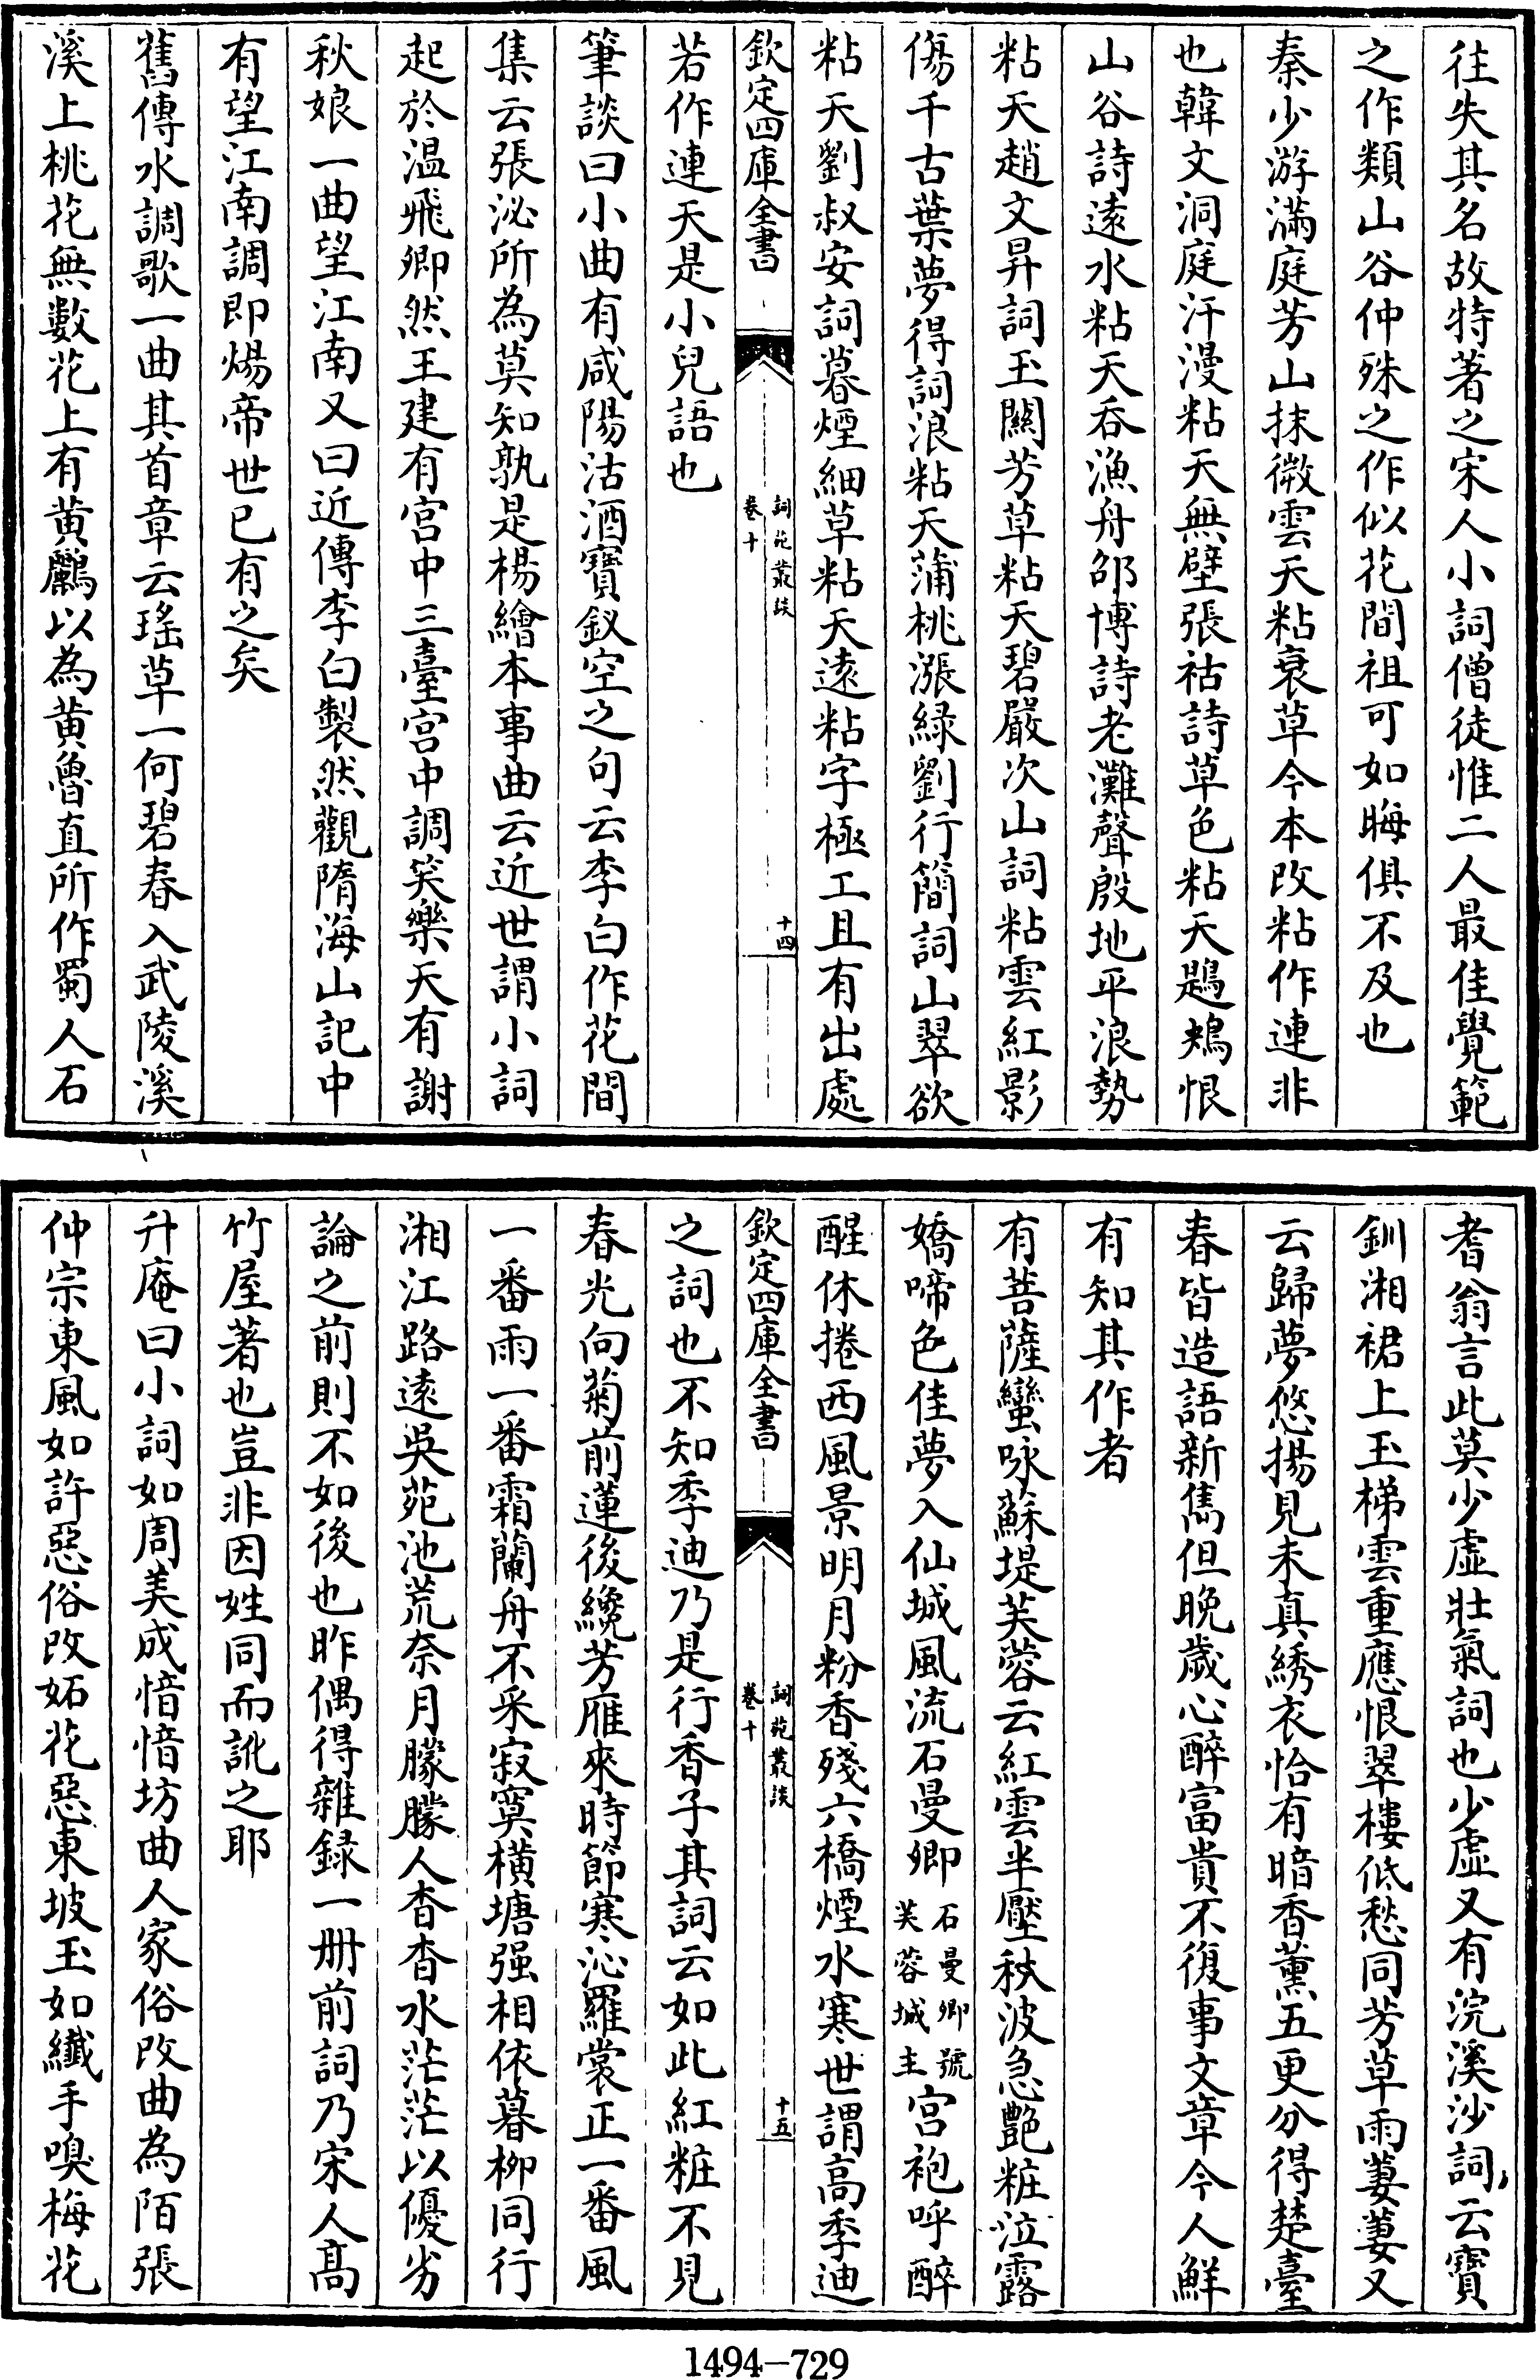 往失其名故特著之宋人小詞僧徒惟二人最佳覺範
之作類山谷仲殊之作似花間祖可如晦俱不及也
秦少游滿庭芳山抹微雲天粘衰草今本改粘作連非
也韓文洞庭汗漫粘天無壁張祜詩草色粘天鶗鴂恨
山谷詩遠水粘天吞漁舟邵博詩老灘聲殷地平浪勢
粘天趙文昇詞玉關芳草粘天碧嚴次山詞粘雲紅影
傷千古葉夢得詞浪粘天蒲桃漲緑劉行簡詞山翠欲
粘天劉叔安詞暮煙細草粘天遠粘字極工且有出處
欽定四庫全書
詞苑叢談
卷十
十四
若作連天是小兒語也
筆談曰小曲有咸陽沽酒寶釵空之句云李白作花間
集云張泌所為莫知孰是楊繪本事曲云近世謂小詞
起於温飛卿然王建有宫中三臺宫中調笑樂天有謝
秋娘一曲望江南又曰近傳李白製然觀隋海山記中
有望江南調即煬帝世已有之矣
舊傳水調歌一曲其首章云瑤草一何碧春入武陵溪
溪上桃花無數花上有黄鸝以為黄魯直所作蜀人石
耆翁言此莫少虚壯氣詞也少虚又有浣溪沙詞云寶
釧湘裙上玉梯雲重應恨翠樓低愁同芳草雨萋萋又
云歸夢悠揚見未真綉衣恰有暗香薰五更分得楚臺
春皆造語新雋但晚歲心醉富貴不復事文章今人鮮
有知其作者
有菩薩蠻咏蘇堤芙蓉云紅雲半壓秋波急艷粧泣露
嬌啼色佳夢入仙城風流石曼卿石曼卿號芙蓉城主宫袍呼醉
醒休捲西風景明月粉香殘六橋煙水寒世謂高季迪
欽定四庫全書
詞苑叢談
卷十
十五
之詞也不知季迪乃是行香子其詞云如此紅粧不見
春光向菊前蓮後纔芳雁來時節寒沁羅裳正一番風
一番雨一番霜蘭舟不采寂寞橫塘强相依暮柳同行
湘江路遠吳苑池荒奈月朦朦人杳杳水茫茫以優劣
論之前則不如後也昨偶得雜録一册前詞乃宋人高
竹屋著也豈非因姓同而訛之耶
升庵曰小詞如周美成愔愔坊曲人家俗改曲為陌張
仲宗東風如許惡俗改妬花惡東坡玉如纎手嗅梅花
1494-729